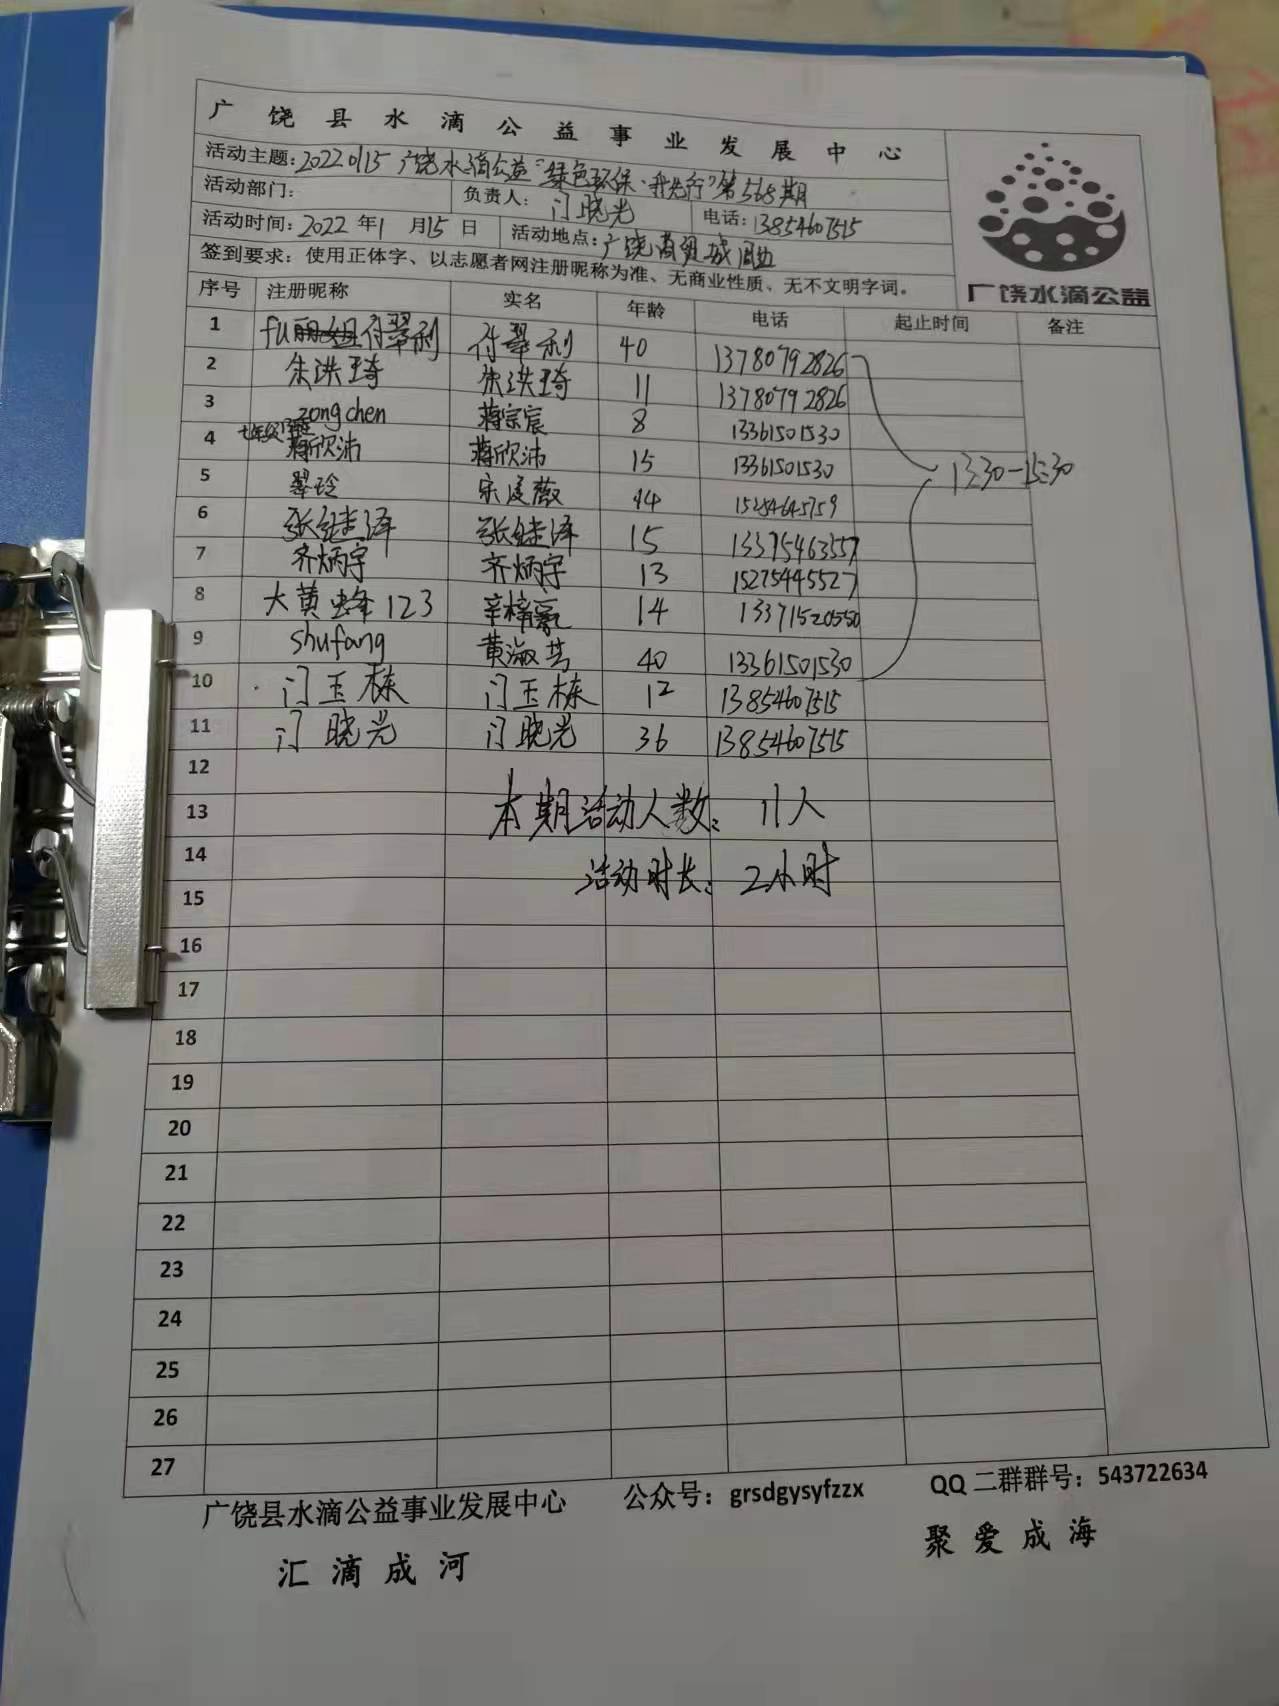 广饶县水滴公益事业发展中心
广饶水滴公益
活动主题:20220115广饶水滴公益"绿色环保·我先行"第568期
活动部门: 负责人: 门晓光 电话:13854607515
活动时间:2022年1月15日 活动地点:广饶商贸城周边
签到要求:使用正体字、以志愿者网注册昵称为准、无商业性质、无不文明字词。
序号 注册昵称 实名 年龄 电话 起止时间 备注
1 付翠利 付翠利 40 13780792826
2 朱洪琦 朱洪琦 11 13780792826
3 zongchen 蒋宗宸 8 13361501530
4 蒋欣沛 蒋欣沛 15 13361501530
13:30-15:30
5 翠玲 44 15254645759
6 张继泽 张继泽 15 13375463557
7 齐炳宇 齐炳宇 13 15275445527
8 大黄蜂123 14 13371520550
9 shufang 黄淑芳 40 13361501530
10 门玉栋 门玉栋 12 13854607515
11 门晓光 门晓光 36 13854607515
12
13 本期活动人数:11人
14 活动时长:2小时
15
16
17
18
19
20
21
22
23
24
25
26
27
广饶县水滴公益事业发展中心 公众号:grsdgysyfzzx QQ二群群号:543722634
汇滴成河 聚爱成海